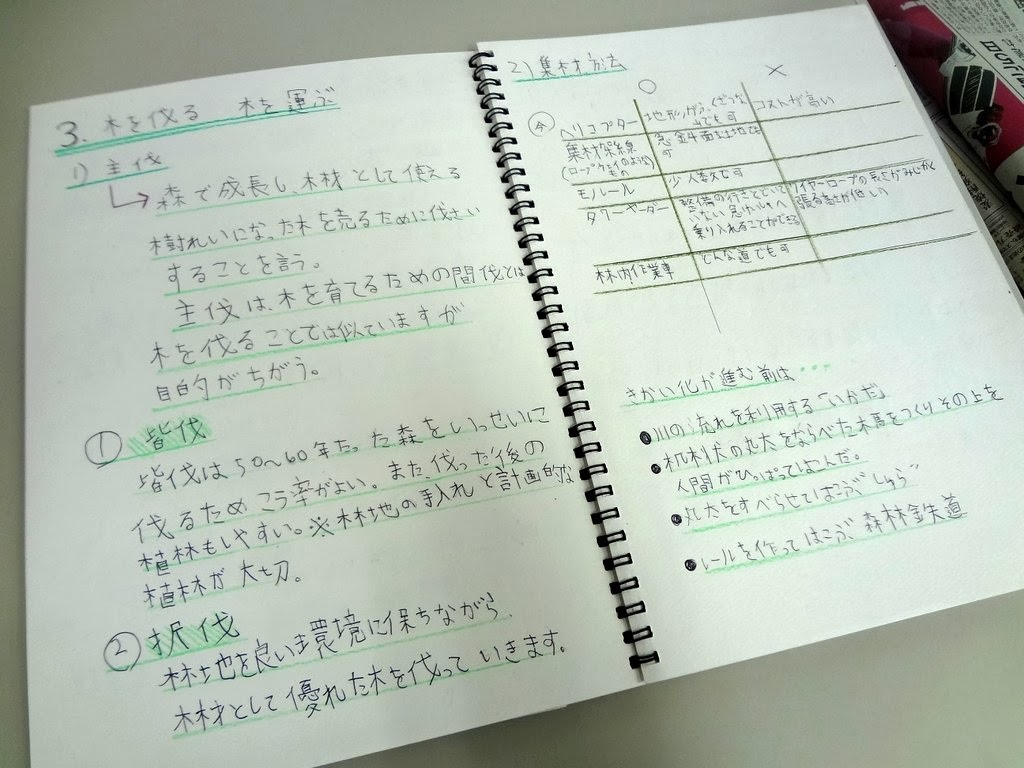 3. 木を伐る 木を運ぶ
1) 主伐
森で成長し、木材として使える
樹れいになった木を売るために伐さい
することを言う。
主伐は、木を育てるための間伐とは
木を伐ることでは似ていますが
目的がちがう。
① 皆伐
皆伐は50~60年たった森をいっせいに
伐るためこう率がよい。また伐った後の
植林もしやすい。※林地の手入れと計画的な
植林が大切。
② 択伐
林地を良い環境に保ちながら
木材として優れた木を伐っていきます。
2) 集材方法
○ ×
今
ヘリコプター 地形がうっくざつな所でも可 コストが高い
集材架線 急斜面土地でも可
(ロープウェイのような)
モノレール 少人数でも可
タワーヤーダー 整備の行きとどいていない急けいしゃへ乗り入れることができる ワイヤーロープの長さがみじかく張る高さが低い
林内作業車 どんな道でも可
きかい化が進む前は…
●川の流れを利用する「いかだ」
●机状の丸太をならべた木馬をつくりその上を
人間がひっぱってはこんだ。
●丸太をすべらせてはこぶ"しゅら"
●レールを作ってはこぶ 森林鉄道